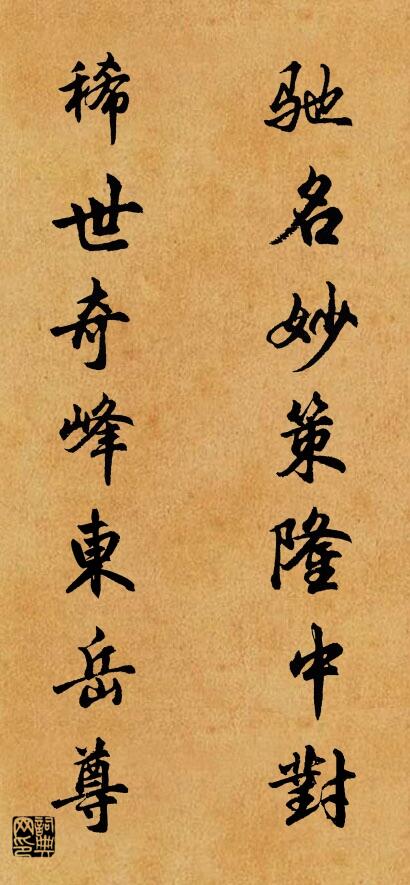 驰名妙策隆中對
稀世奇峰東岳尊
詞典网印